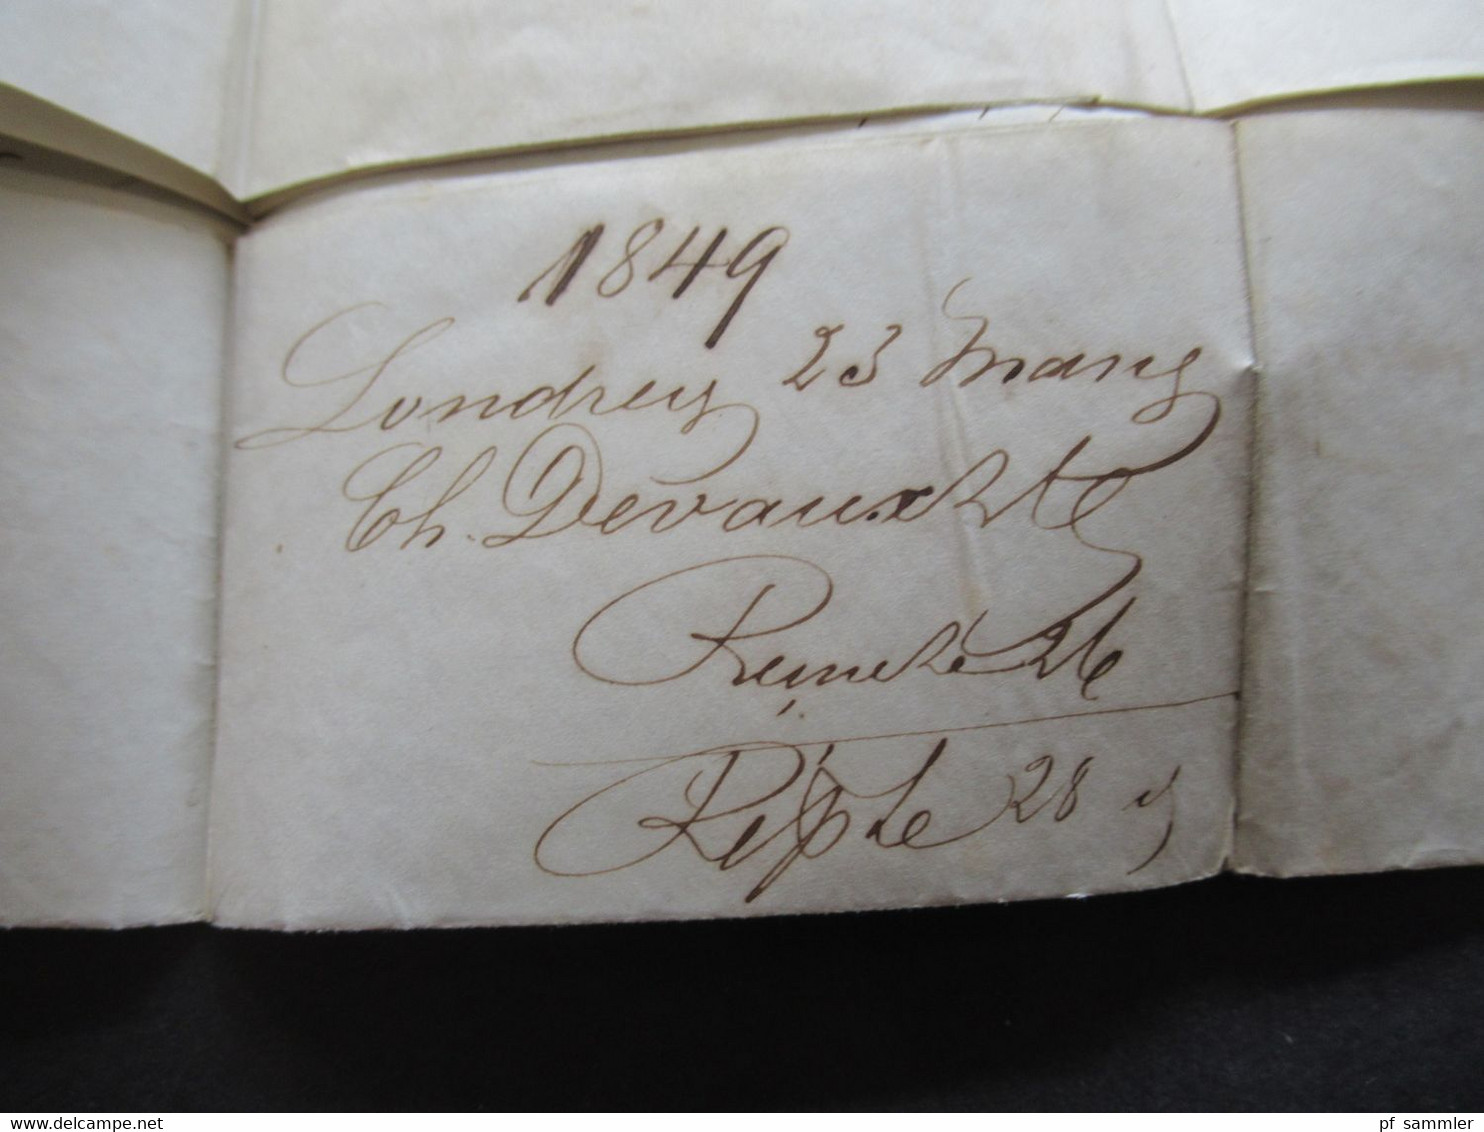 1849
Londres 23 Mars
Ch. Devaux & Ce
26
Rép. le 28 dº
delcampe.net
pf_sammler